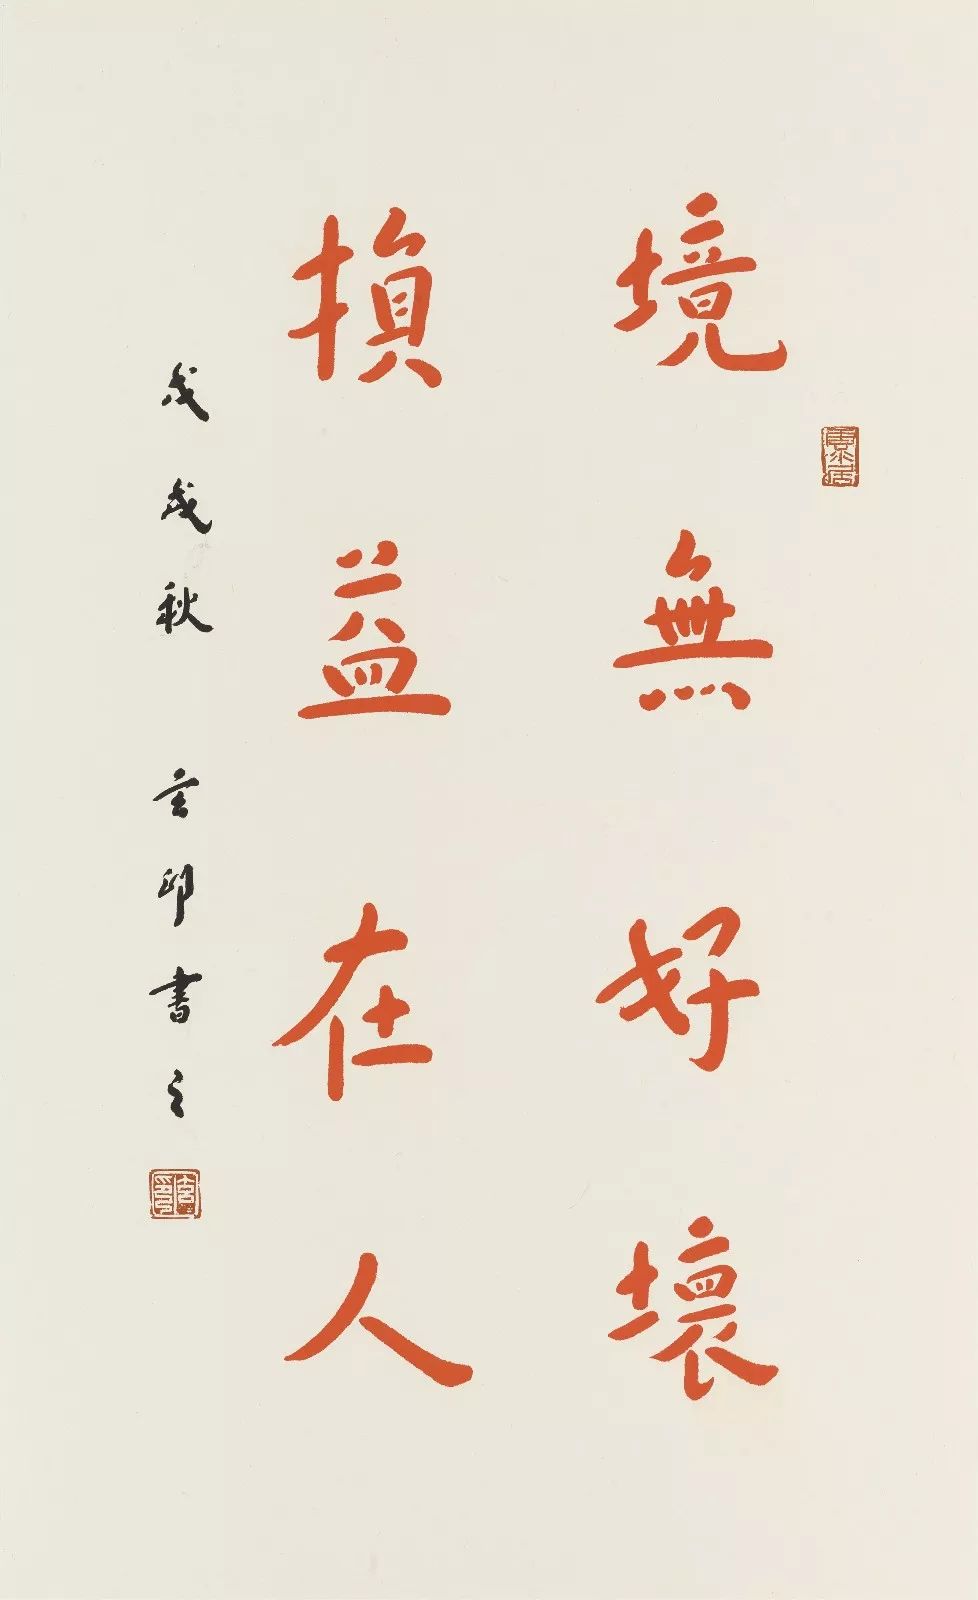 境無好壞
損益在人
戊戌秋 玄印書之